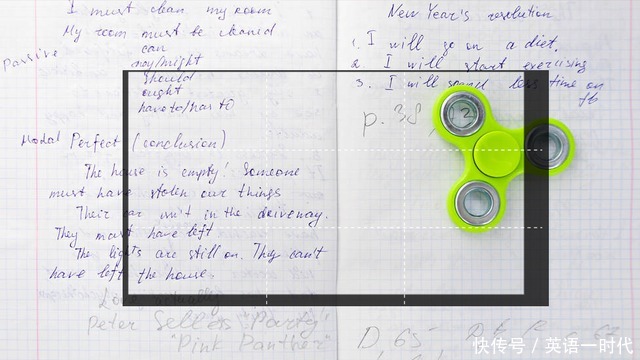 I must clean my room
My room must be cleaned
Passive
can
may/might
should
ought
have to/has to
Modal Perfect (conclusion)
The house is empty! Someone
must have stolen our things
Their car isn't in the driveway.
They must have left
The lights are still on. They can't
have left the house.
Love actually
Peter Sellers 'Party'
"Pink Panther"
New Year's resolution
1. I will go on a diet.
2. I will start exercising
3. I will spend less time on
fb
p. 38,
D, 65
快传号 / 英语一时代